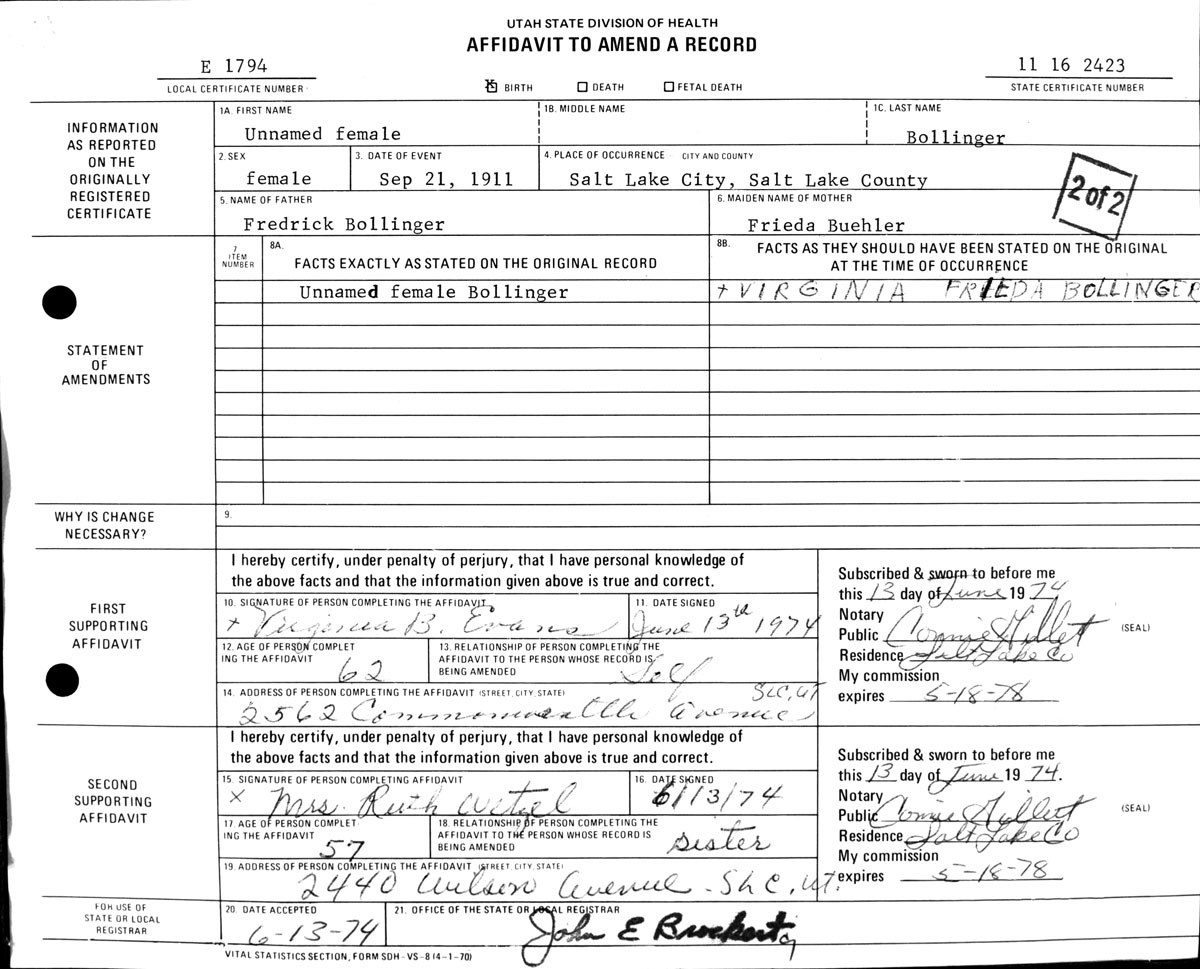 UTAH STATE DIVISION OF HEALTH
AFFIDAVIT TO AMEND A RECORD
E 1794
LOCAL CERTIFICATE NUMBER
☒ BIRTH ☐ DEATH ☐ FETAL DEATH
11 16 2423
STATE CERTIFICATE NUMBER
INFORMATION AS REPORTED ON THE ORIGINALLY REGISTERED CERTIFICATE
1A. FIRST NAME 1B. MIDDLE NAME 1C. LAST NAME
Unnamed female Bollinger
2. SEX 3. DATE OF EVENT 4. PLACE OF OCCURRENCE CITY AND COUNTY
female Sep 21, 1911 Salt Lake City, Salt Lake County
2 of 2
5. NAME OF FATHER 6. MAIDEN NAME OF MOTHER
Fredrick Bollinger Frieda Buehler
STATEMENT OF AMENDMENTS
7 ITEM NUMBER
8A. FACTS EXACTLY AS STATED ON THE ORIGINAL RECORD
8B. FACTS AS THEY SHOULD HAVE BEEN STATED ON THE ORIGINAL
AT THE TIME OF OCCURRENCE
Unnamed female Bollinger + VIRGINIA FRIEDA BOLLINGER
WHY IS CHANGE NECESSARY?
9.
FIRST SUPPORTING AFFIDAVIT
I hereby certify, under penalty of perjury, that I have personal knowledge of
the above facts and that the information given above is true and correct.
10. SIGNATURE OF PERSON COMPLETING THE AFFIDAVIT 11. DATE SIGNED
+ Virginia B. Evans June 13th 1974
12. AGE OF PERSON COMPLETING THE AFFIDAVIT
62
13. RELATIONSHIP OF PERSON COMPLETING THE AFFIDAVIT TO THE PERSON WHOSE RECORD IS BEING AMENDED
Self
14. ADDRESS OF PERSON COMPLETING THE AFFIDAVIT (STREET, CITY, STATE)
2562 Commonwealth Avenue SLC, UT
Subscribed & sworn to before me
this 13 day of June 19 74
Notary
Public Connie Hillett (SEAL)
Residence Salt Lake Co
My commission
expires 5-18-78
SECOND SUPPORTING AFFIDAVIT
I hereby certify, under penalty of perjury, that I have personal knowledge of
the above facts and that the information given above is true and correct.
15. SIGNATURE OF PERSON COMPLETING AFFIDAVIT 16. DATE SIGNED
X Mrs. Ruth Wetzel 6/13/74
17. AGE OF PERSON COMPLETING THE AFFIDAVIT
57
18. RELATIONSHIP OF PERSON COMPLETING THE AFFIDAVIT TO THE PERSON WHOSE RECORD IS BEING AMENDED
sister
19. ADDRESS OF PERSON COMPLETING THE AFFIDAVIT (STREET, CITY, STATE)
2440 Wilson Avenue - SLC, UT.
Subscribed & sworn to before me
this 13 day of June 19 74.
Notary
Public Connie Hillett (SEAL)
Residence Salt Lake Co
My commission
expires 5-18-78
FOR USE OF STATE OR LOCAL REGISTRAR
20. DATE ACCEPTED 21. OFFICE OF THE STATE OR LOCAL REGISTRAR
6-13-74 John E Brockert
VITAL STATISTICS SECTION, FORM SDH-VS-8 (4-1-70)